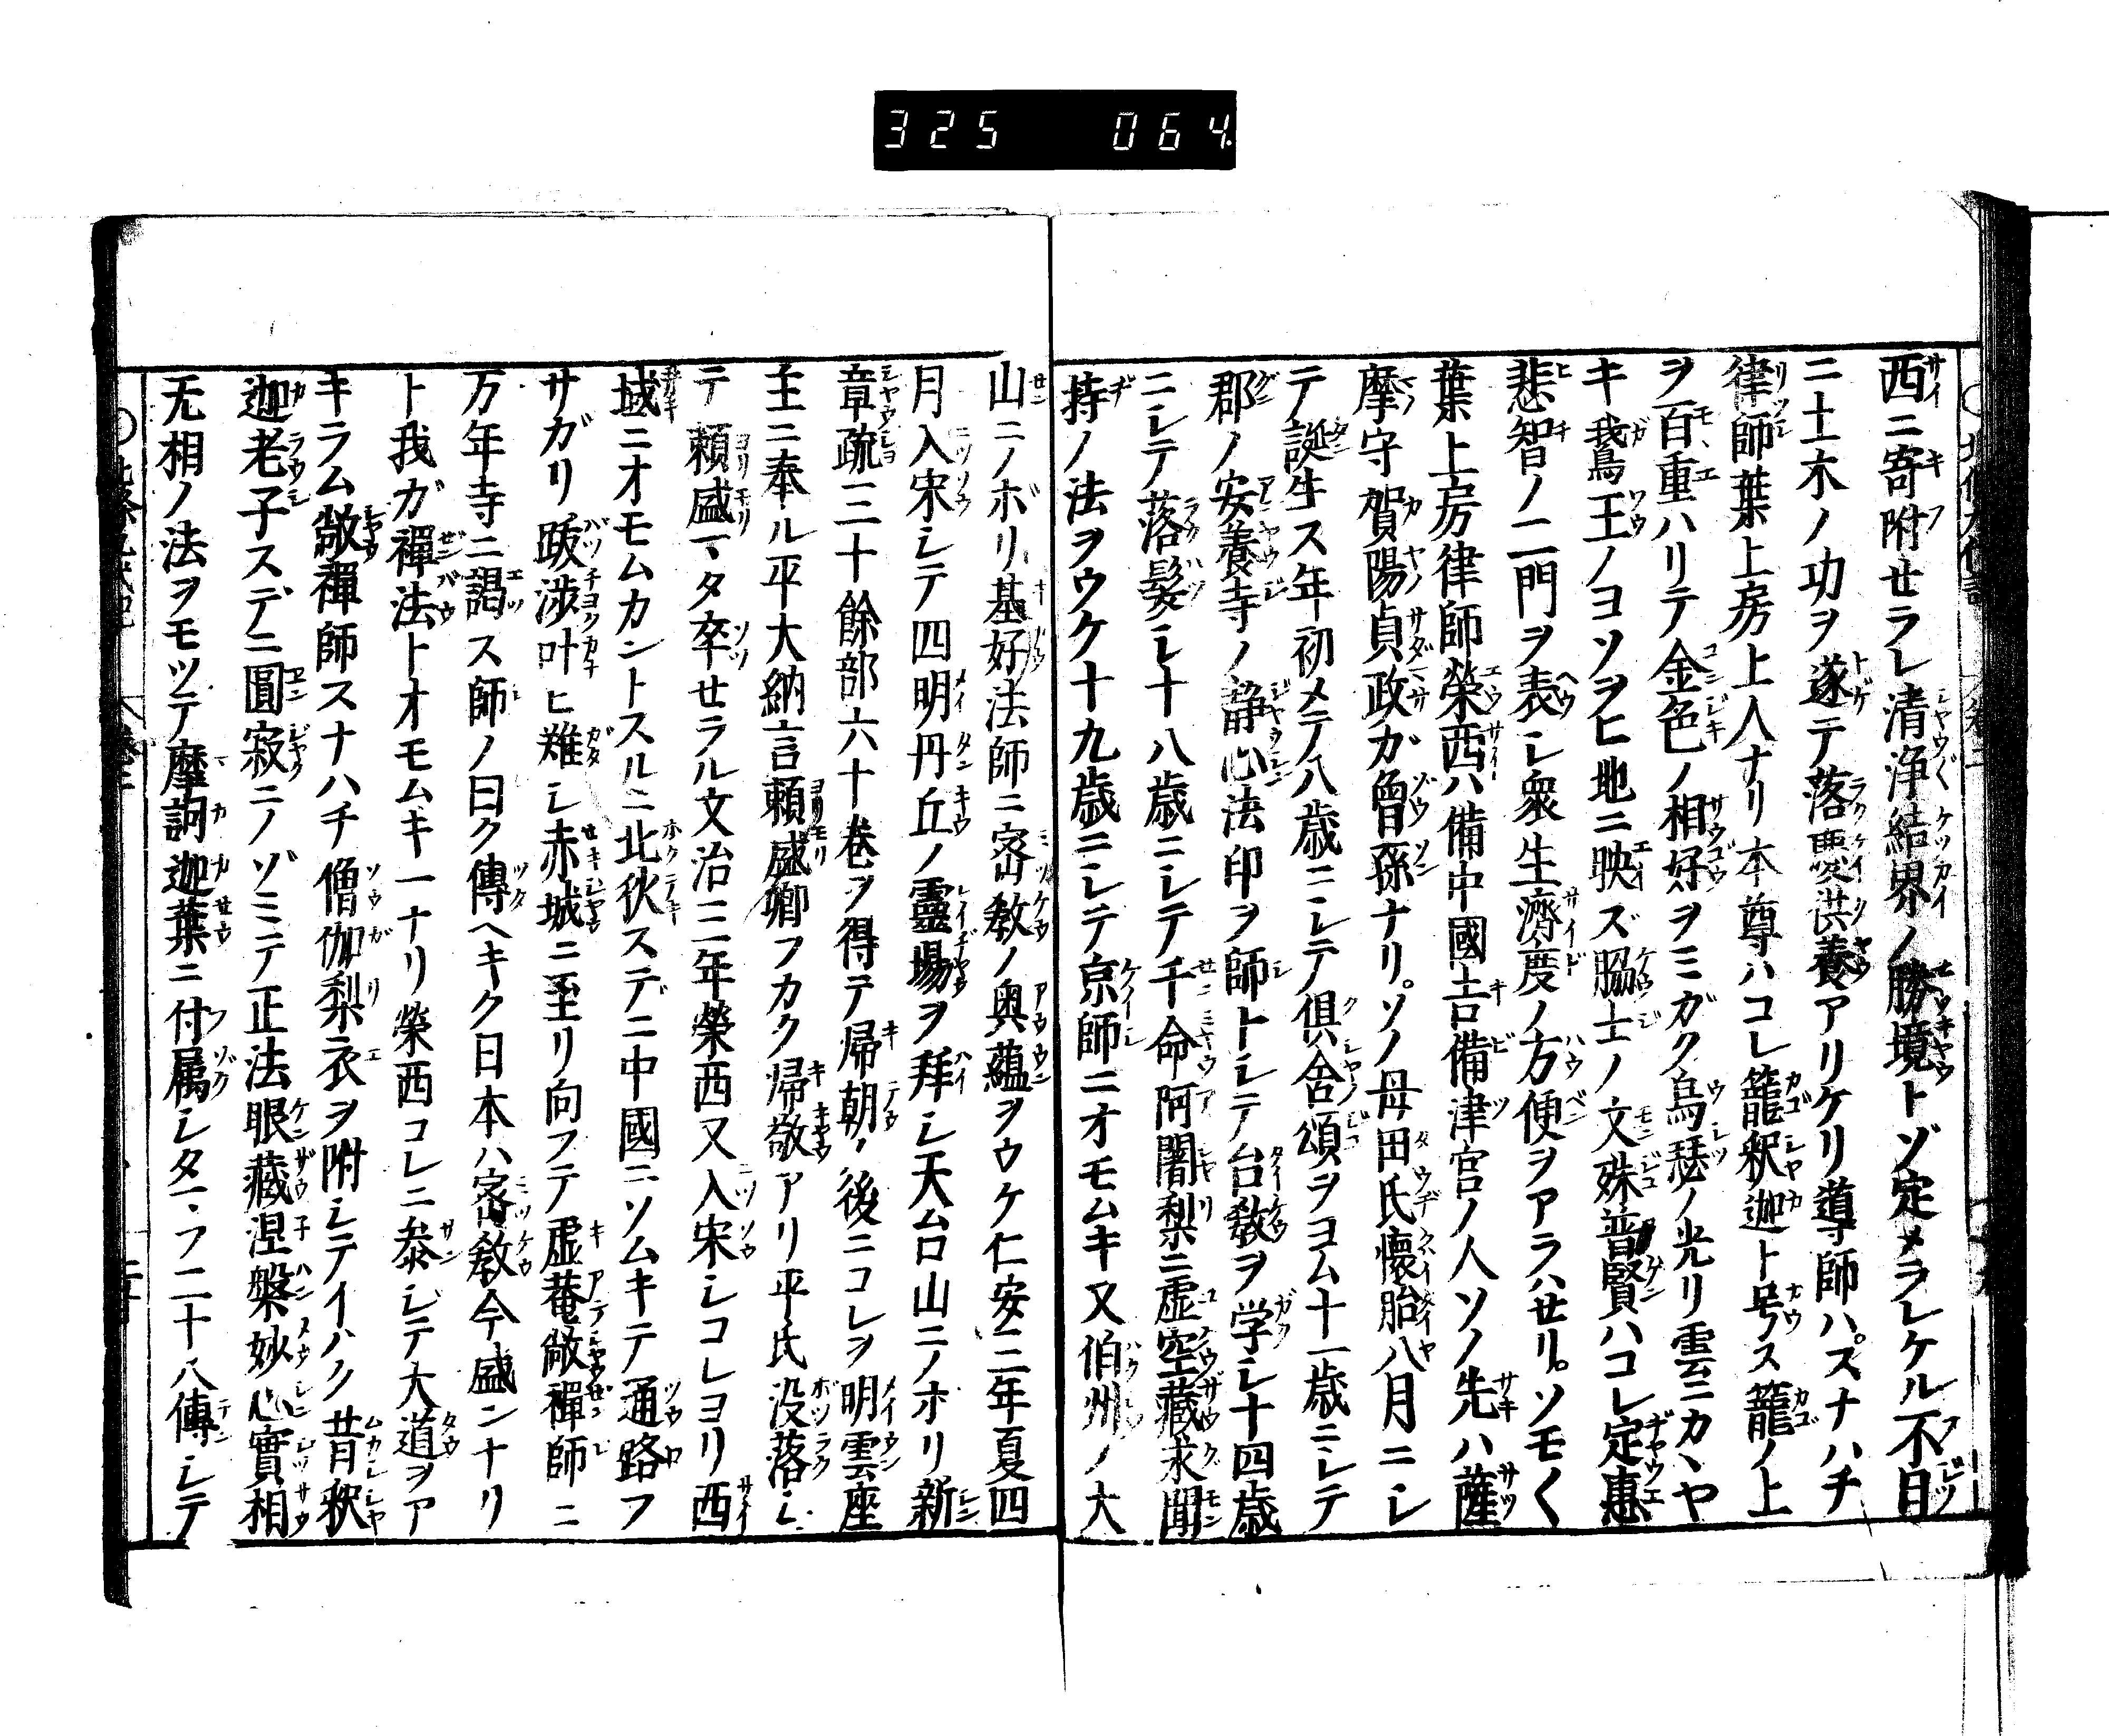 325 064
西ニ寄附せラレ清浄結界ノ勝境トゾ定メラレケル不日
ニ土木ノ功ヲ遂テ落慶供養アリケリ導師ハスナハチ
律師葉上房上人ナリ本尊ハコレ籠釈迦ト号ス籠ノ上
ヲ百重ハリテ金色ノ相好ヲミガク烏瑟ノ光リ雲ニカヽヤ
キ我鳥王ノヨソヲヒ地ニ映ズ脇士ノ文殊普賢ハコレ定惠
悲智ノ二門ヲ表シ衆生濟度ノ方便ヲアラハせリソモ〱
葉上房律師榮西ハ備中國吉備津宮ノ人ソノ先ハ薩
摩守賀陽貞政ガ曾孫ナリソノ母田氏懷胎八月ニシ
テ誕生ス年初メテ八歳ニシテ倶舎頌ヲヨム十一歳ニシテ
郡ノ安養寺ノ静心法印ヲ師トシテ台教ヲ学シ十四歳
ニシテ落髪シ十八歳ニシテ千命阿闍梨ニ虚空藏求聞
持ノ法ヲウケ十九歳ニシテ京師ニオモムキ又伯州ノ大
山ニノボリ基好法師ニ密教ノ奥蘊ヲウケ仁安三年夏四
月入宋シテ四明丹丘ノ靈場ヲ拜シ天台山ニノホリ新
章疏三十餘部六十巻ヲ得テ帰朝ノ後ニコレヲ明雲座
主ニ奉ル平大納言頼盛卿フカク帰敬アリ平氏没落シ
テ頼盛マタ卒せラル文治三年榮西又入宋シコレヨリ西
域ニオモムカントスルニ北狄スデニ中國ニソムキテ通路フ
サガリ跋渉叶ヒ難シ赤城ニ至リ向フテ虚菴敞禪師ニ
万年寺ニ謁ス師ノ曰ク傳ヘキク日本ハ密教今盛ンナリ
ト我ガ禪法トオモムキ一ナリ榮西コレニ參ジテ大道ヲア
キラム敞禪師スナハチ僧伽梨衣ヲ附シテイハク昔釈
迦老子スデニ圓寂ニノゾミテ正法眼藏涅槃妙心實相
无相ノ法ヲモツテ摩訶迦葉ニ付属シタマフ二十八傳シテ